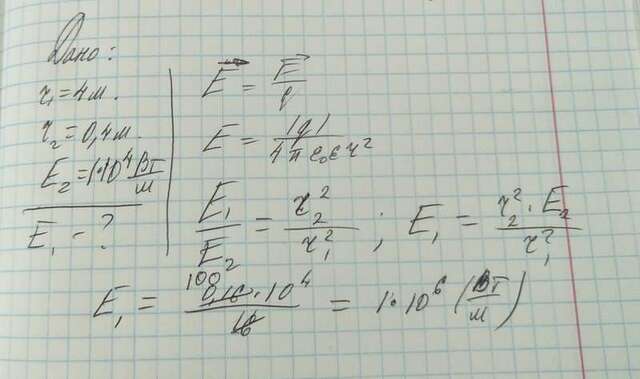 Дано:
r₁ = 4 м.
r₂ = 0,4 м.
E₂ = 1·10⁴ Вт/м
E₁ - ?
E = F/q
E = |q| / 4πε₀εr²
E₁/E₂ = r₂²/r₁² ; E₁ = r₂²·E₂ / r₁²
E₁ = 100 0,16·10⁴ / 16 = 1·10⁶ (Вт/м)